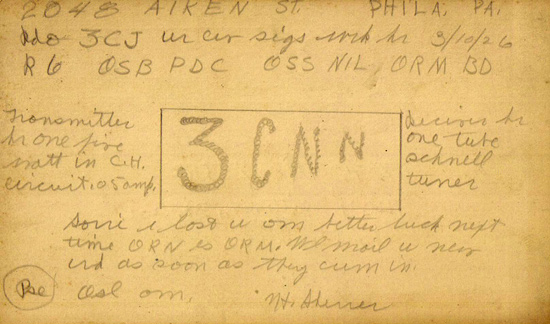 2048 AIKEN ST. PHILA, PA.
Rdo 3CJ ur cw sigs wrk hr 3/10/26
R6 QSB PDC QSS NIL, QRM BD
Transmitter
hr one five
watt in C.H.
circuit .05 amp.
3CNN
Receiver hr
one tube
schnell
tuner
Sorri i lost u om better luck next
time QRN es QRM. Wl mail u new
crd as soon as they cum in.
Pse Qsl om.